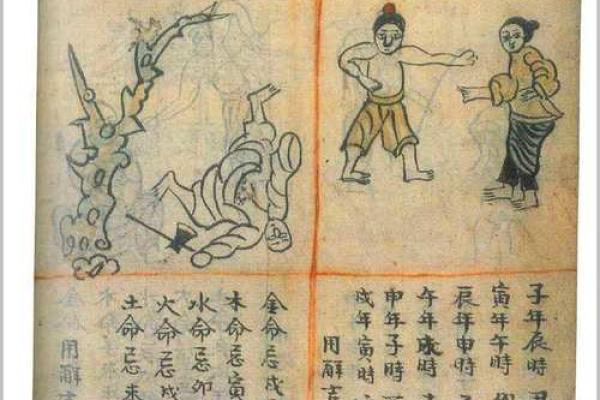 子年辰時
寅年午時
辰年申時
午年戌時
申年子時
戌年寅時
用解
金命忌
木命忌寅
水命忌卯
火命忌戌
土命忌未
用解